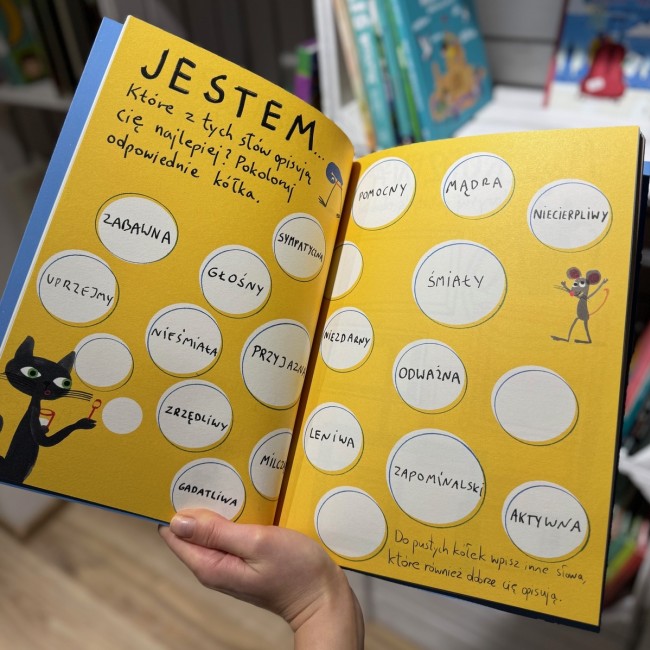 JESTEM...
Które z tych słów opisują
cię najlepiej? Pokoloruj
odpowiednie kółka.
ZABAWNA
SYMPATYCZNA
UPRZEJMY
GŁOŚNY
NIEŚMIAŁA
PRZYJAZNA
ZRZĘDLIWY
MILCZ
GADATLIWA
POMOCNY
MĄDRA
NIECIERPLIWY
ŚMIAŁY
NIEZDARNY
ODWAŻNA
LENIWA
ZAPOMINALSKI
AKTYWNA
Do pustych kółek wpisz inne słowa,
które również dobrze cię opisują.